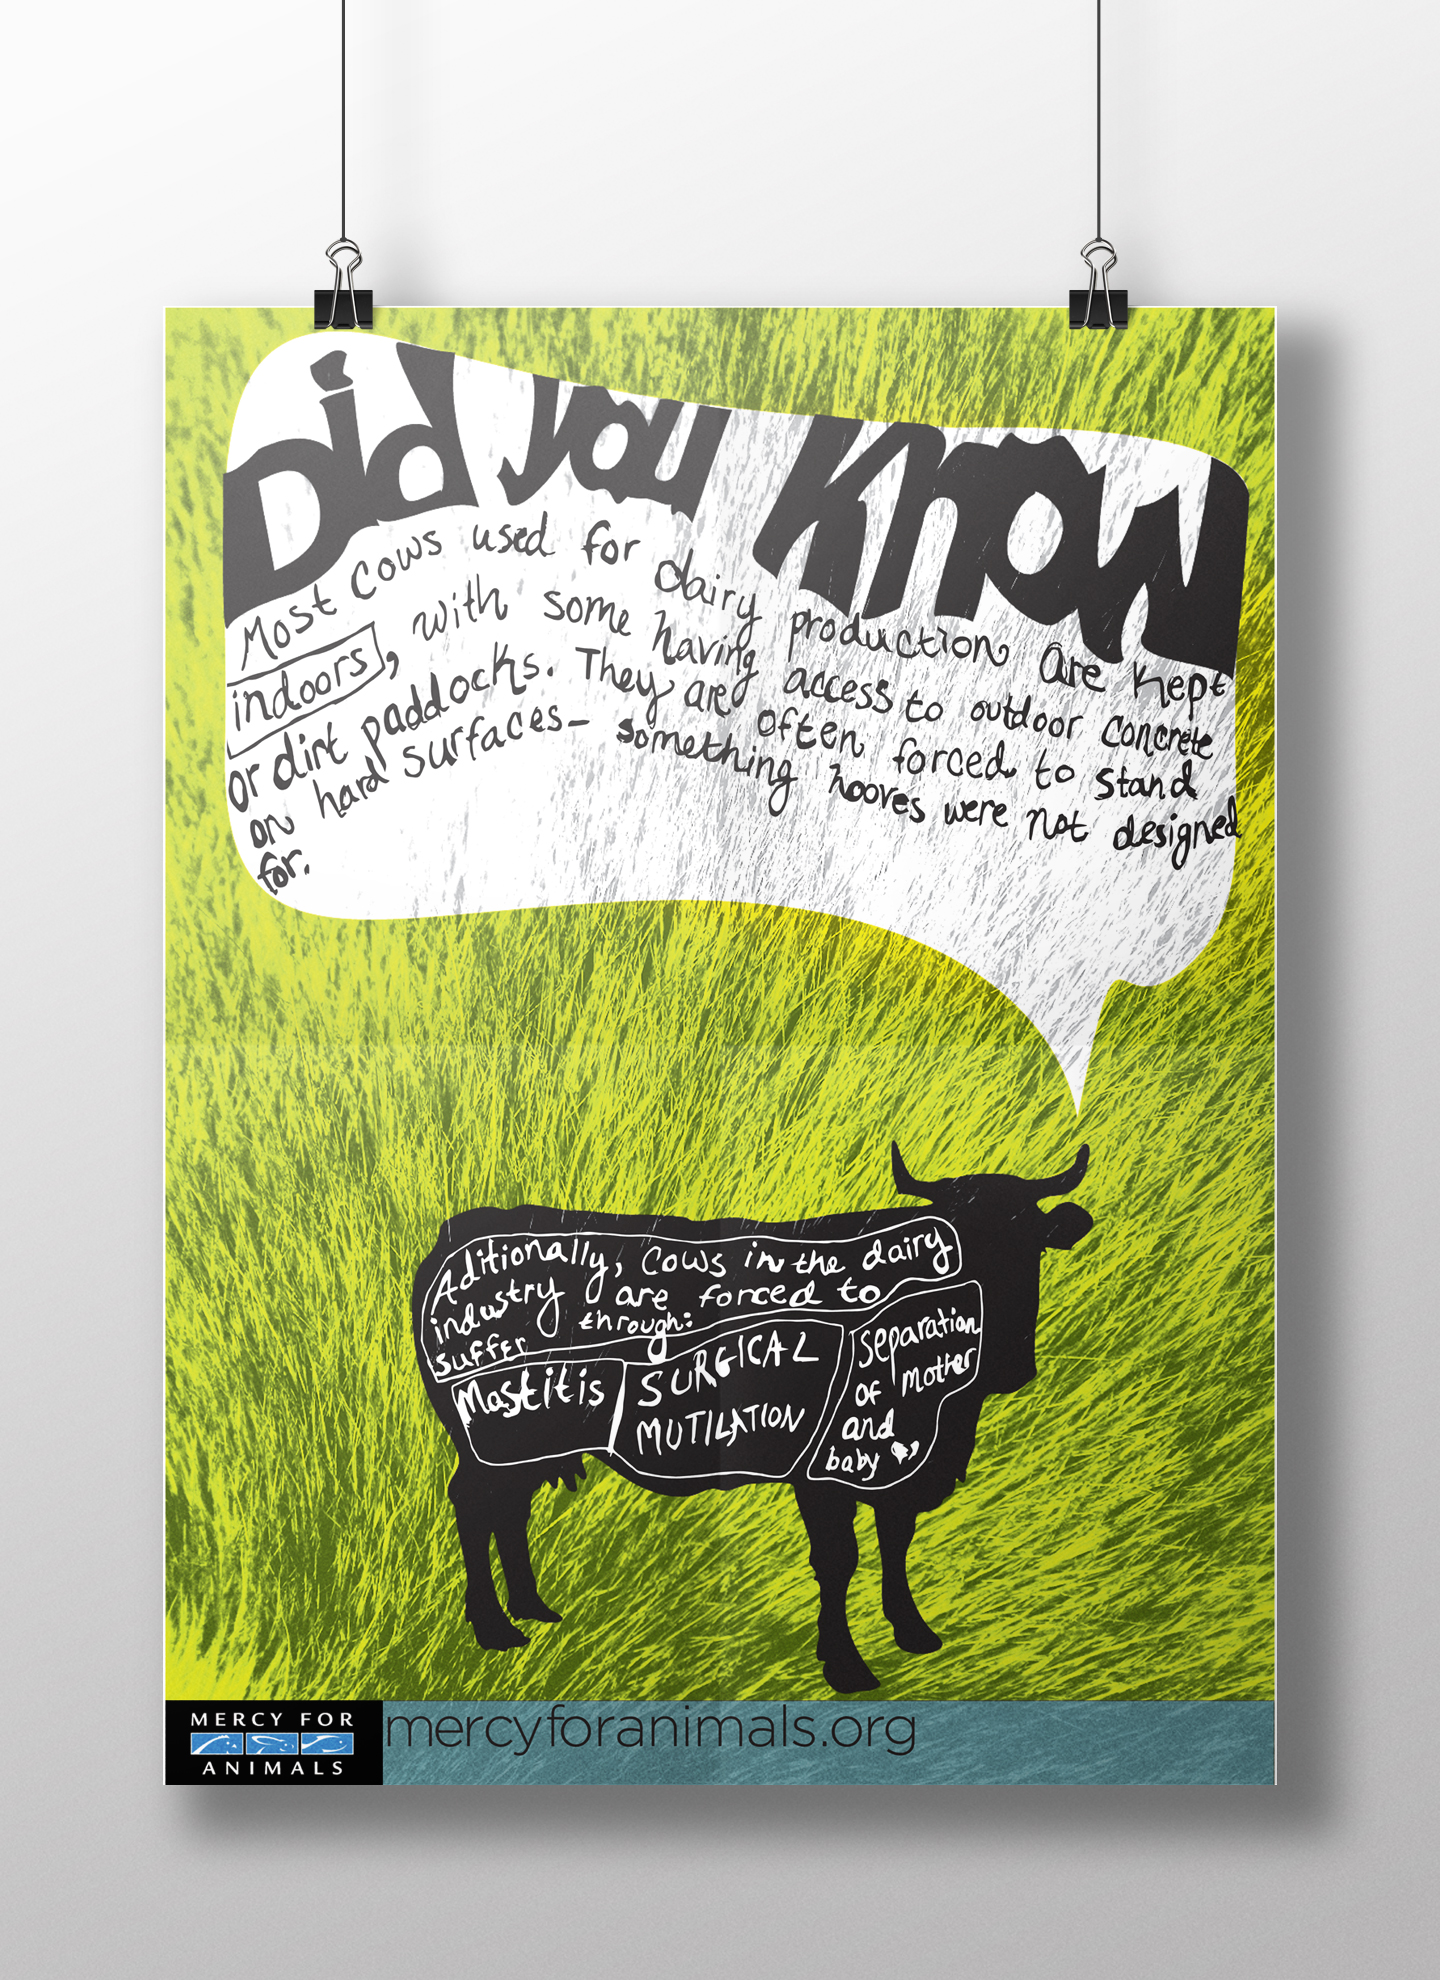 Did you know
Most Cows used for dairy production are kept
indoors, with some having access to outdoor concrete
or dirt paddocks. They are often forced to stand
on hard surfaces- something hooves were not designed
for.
Aditionally, Cows in the dairy
industry are forced to
suffer through:
Mastitis
SURGICAL
MUTILATION
separation
of mother
and
baby
MERCY FOR
ANIMALS
mercyforanimals.org